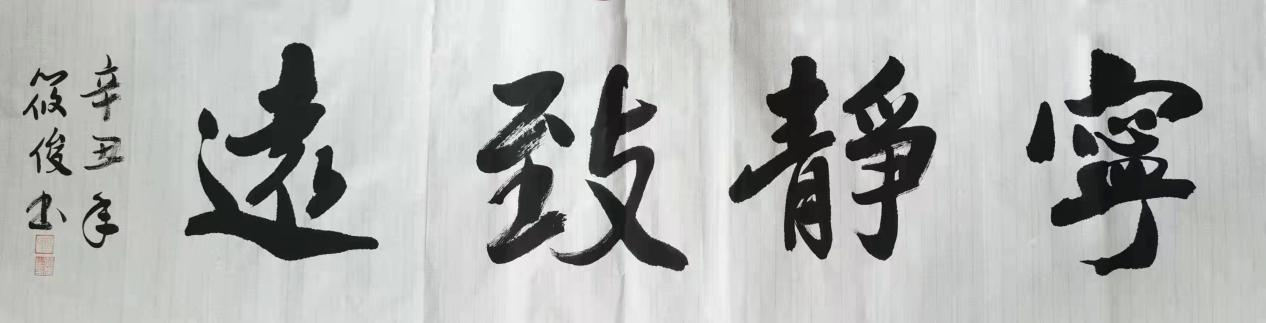 寧靜致遠
辛丑年
筱俊书